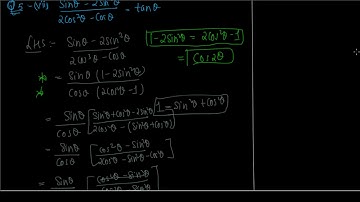 Q5-(vi) Sinθ - 2sin³θ / 2cos³θ - Cosθ = tanθ
LHS :- Sinθ - 2sin³θ / 2cos³θ - Cosθ
1 - 2sin²θ = 2cos²θ - 1
= Cos2θ
= Sinθ (1 - 2sin²θ) / Cosθ (2cos²θ - 1)
1 = Sin²θ + Cos²θ
= Sinθ / Cosθ [ Sin²θ + cos²θ - 2sin²θ / 2cos²θ - (Sin²θ + Cos²θ) ]
= Sinθ / Cosθ [ cos²θ - Sin²θ / 2cos²θ - Sin²θ - cos²θ ]
= Sinθ [ cos²θ - Sin²θ / cos²θ - Sin²θ ]